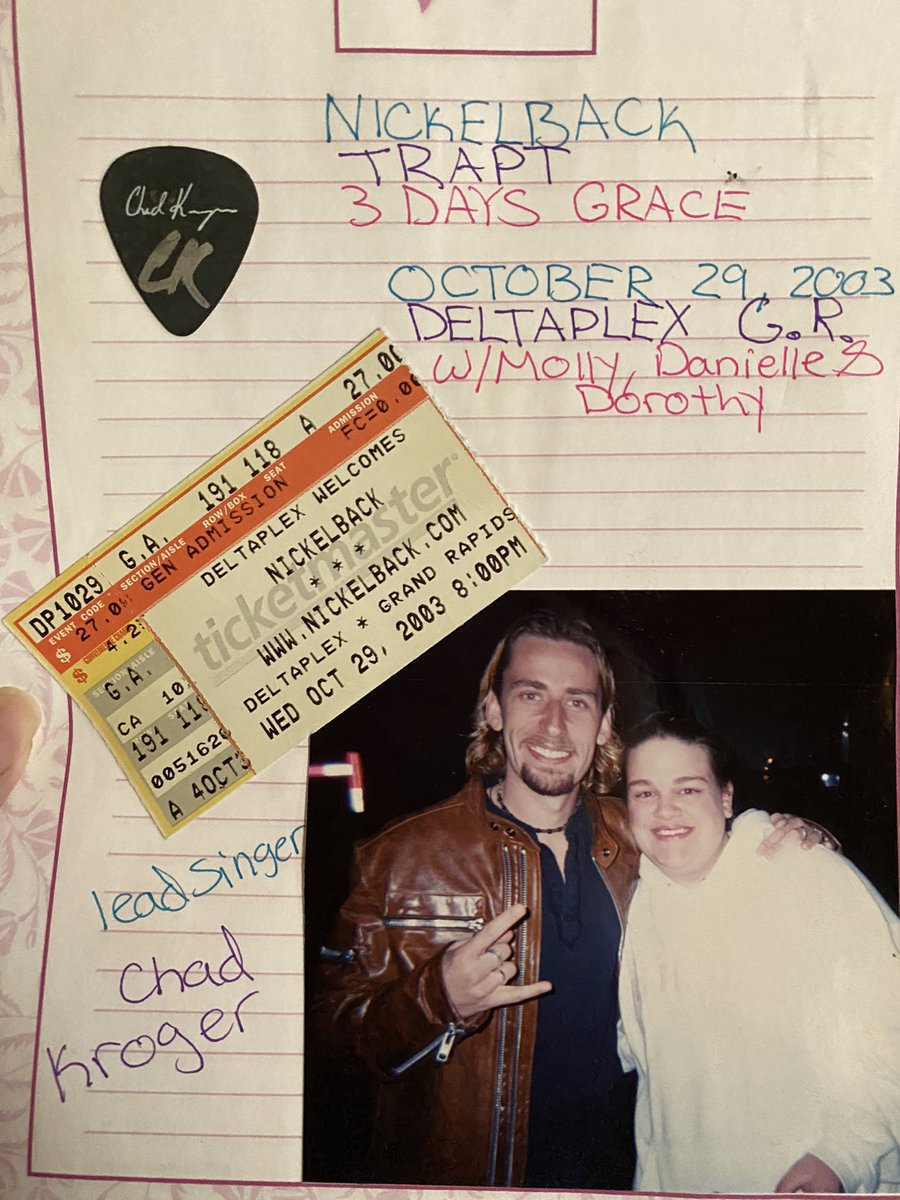 NICKELBACK
TRAPT
3 DAYS GRACE
Chad Kroeger
CK
OCTOBER 29, 2003
DELTAPLEX G.R.
W/Molly, Danielle &
Dorothy
DP1029 G.A. 191 118 A 27.00
EVENT CODE SECTION/AISLE ROW/BOX SEAT ADMISSION
$ 27.00 GEN ADMISSION FC=0.00
DELTAPLEX WELCOMES
ticketmaster
NICKELBACK
* * *
WWW.NICKELBACK.COM
DELTAPLEX * GRAND RAPIDS
WED OCT 29, 2003 8:00PM
$ 4.2
SECTION/AISLE
G.A.
CA 10
191 11
005162
A 4OCT3
lead Singer
Chad
Kroger